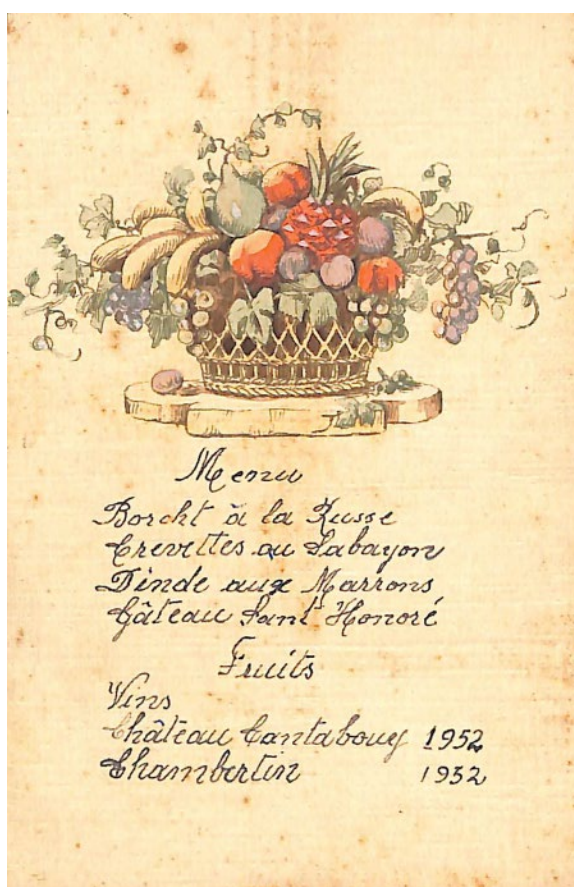 Menu
Borcht à la Russe
Crevettes au Sabayon
Dinde aux Marrons
Gâteau Sant Honoré
Fruits
Vins
Château Cantabouy 1952
Chambertin 1952